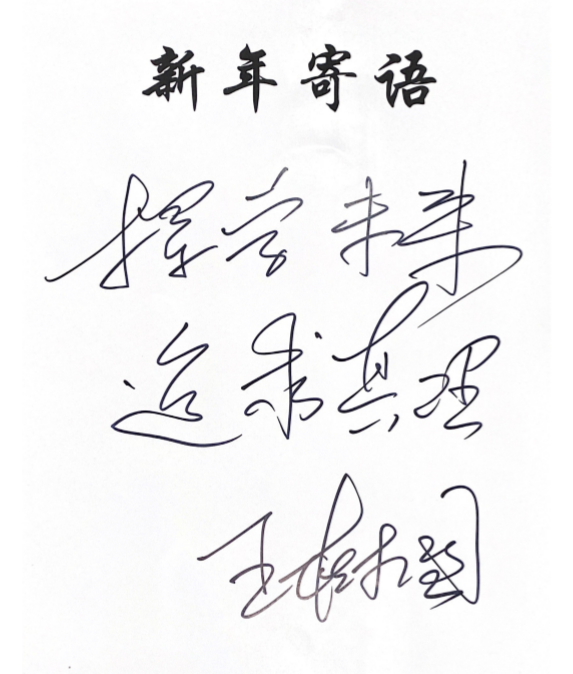 新年寄语
探索未来
追求真理
王树国